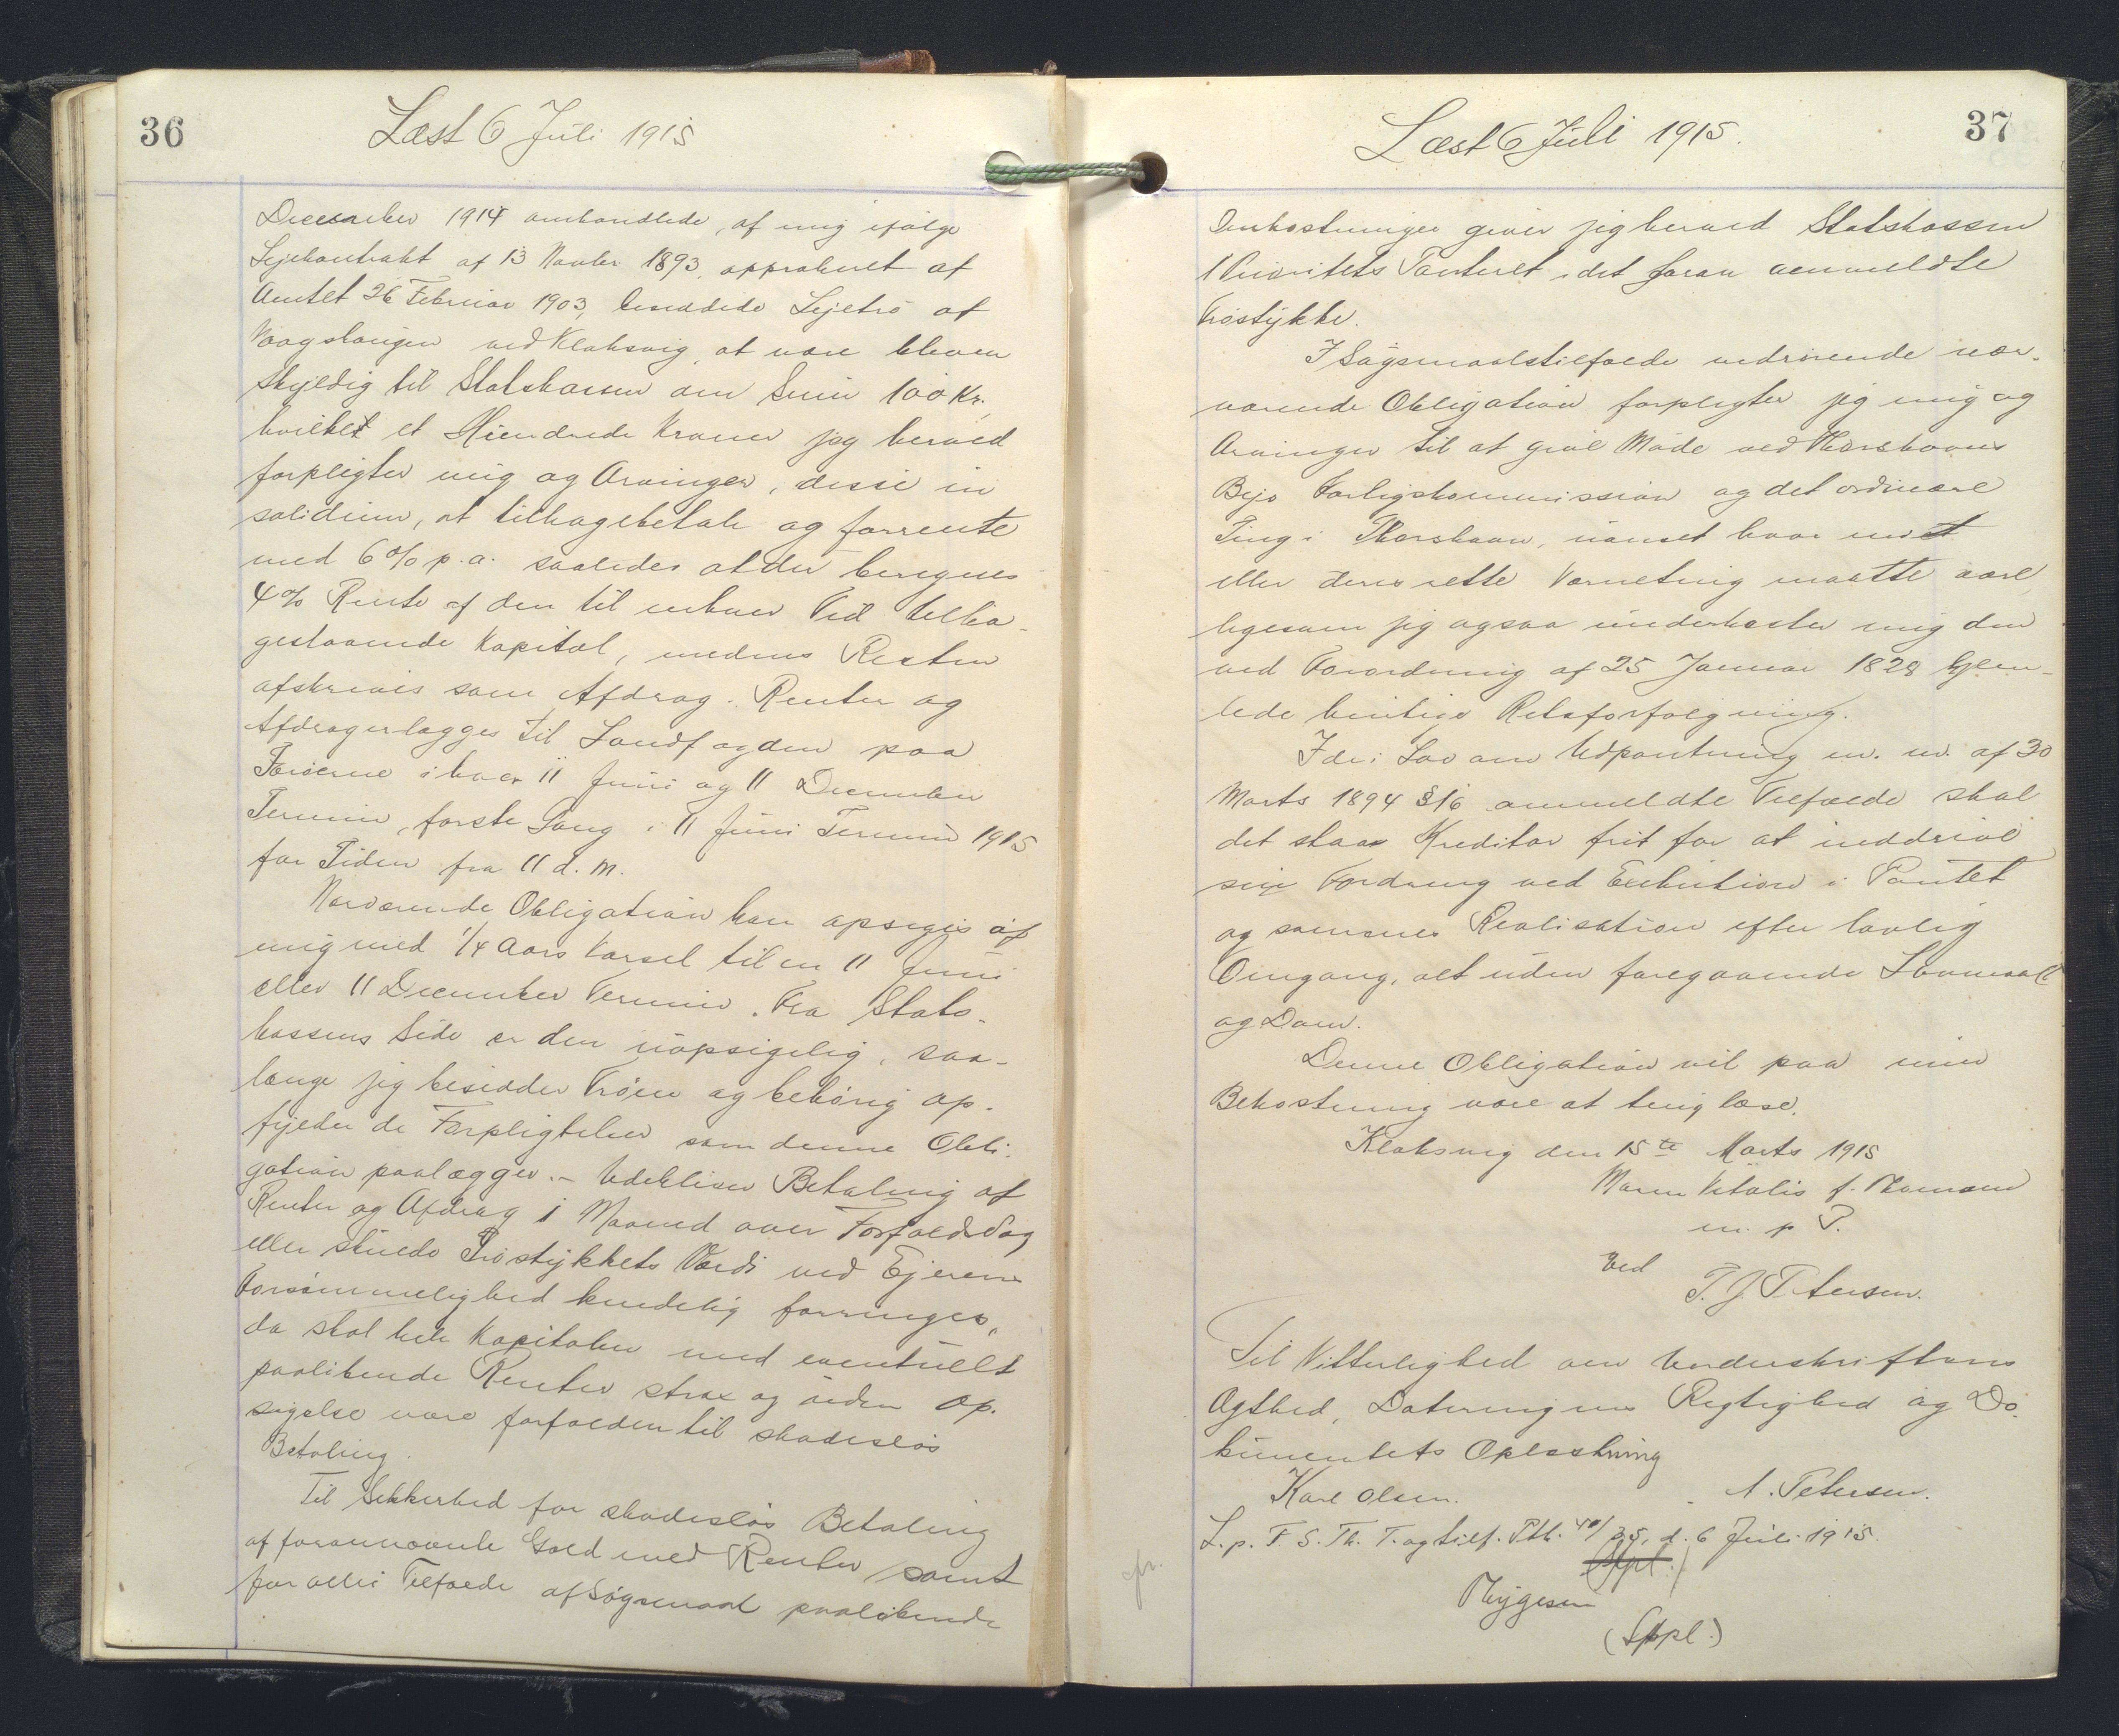 36
Læst 6 Juli 1915
December 1914 omhandlede, af mig ifølge
Lejekontrakt af 13 Novber 1893, approberet af
Amtet 26 Februar 1903, besiddede Lejetrø af
Vaagshaugen ved Klaksvig, at være bleven
skyldig til Statskassen den Sum 100 Kr.,
hvilket et Hundrede Kroner jeg herved
forpligter mig og Arvinger, disse in
solidum, at tilbagebetale og forrente
med 6% p.a. saaledes at der beregnes
4% Rente af den til enhver Tid tilba-
gestaaende Kapital, medens Resten
afskrives som Afdrag. Renter og
Afdrag erlægges til Landfogden paa
Færøerne i hver 11 Juni og 11 December
Termin, første Gang i 11 Juni Termin 1915
for Tiden fra 11 d. M.
Nærværende Obligation kan opsiges af
mig med 1/4 Aars Varsel til en 11 Juni
eller 11 December Termin. Fra Stats-
kassens Side er den uopsigelig, saa-
længe jeg besidder Trøen og behørig op-
fylder de Forpligtelser som denne Obli-
gation paalægger. - Udebliver Betaling af
Renter og Afdrag 1 Maaned over Forfaldsdag
eller skulde Trøstykkets Værdi ved Ejerens
Forsømmelighed kendelig forringes,
da skal hele Kapitalen med eventuelt
paaløbende Renter strax og uden Op-
sigelse være forfalden til skadesløs
Betaling.
Til Sikkerhed for skadesløs Betaling
af forannævnte Gæld med Renter samt
for alle i Tilfælde af Søgsmaal paaløbende
37
Læst 6 Juli 1915.
Omkostninger giver jeg herved Statskassen
1 Prioritets Panteret i det foran anmeldte
Trøstykke.
I Søgsmaalstilfælde vedrørende nær-
værende Obligation forpligter jeg mig og
Arvinger til at give Møde ved Thorshavns
Byes Forligskommission og det ordinære
Ting i Thorshavn, uanset hvor mit
eller deres rette Værneting maatte være,
ligesom jeg ogsaa underkaster mig den
ved Forordning af 25 Januar 1828 hjem-
lede hurtige Retsforfølgning.
I de i Lov om Udpantning m. m. af 30
Marts 1894 §16 ommeldte Tilfælde skal
det staa Kreditor frit for at inddrive
sin Fordring ved Exekution i Pantet
og sammes Realisation efter lovlig
Omgang, alt uden foregaaende Lovmaal
og Dom.
Denne Obligation vil paa min
Bekostning være at tinglæse.
Klaksvig den 15te Marts 1915
Maren Vitalis f. Thomsen
m. p P.
Ved
P. J. Petersen.
Til Vitterlighed om Underskriftens
Ægthed, Dateringens Rigtighed og Do-
kumentets Oplæsning
Karl Olsen. A. Petersen.
L. p. F. S. Th. T. og tilf. Ptb. 40/35, d. 6 Juli 1915.
(Sppl.)
Thygesen
(Sppl.)
fr.